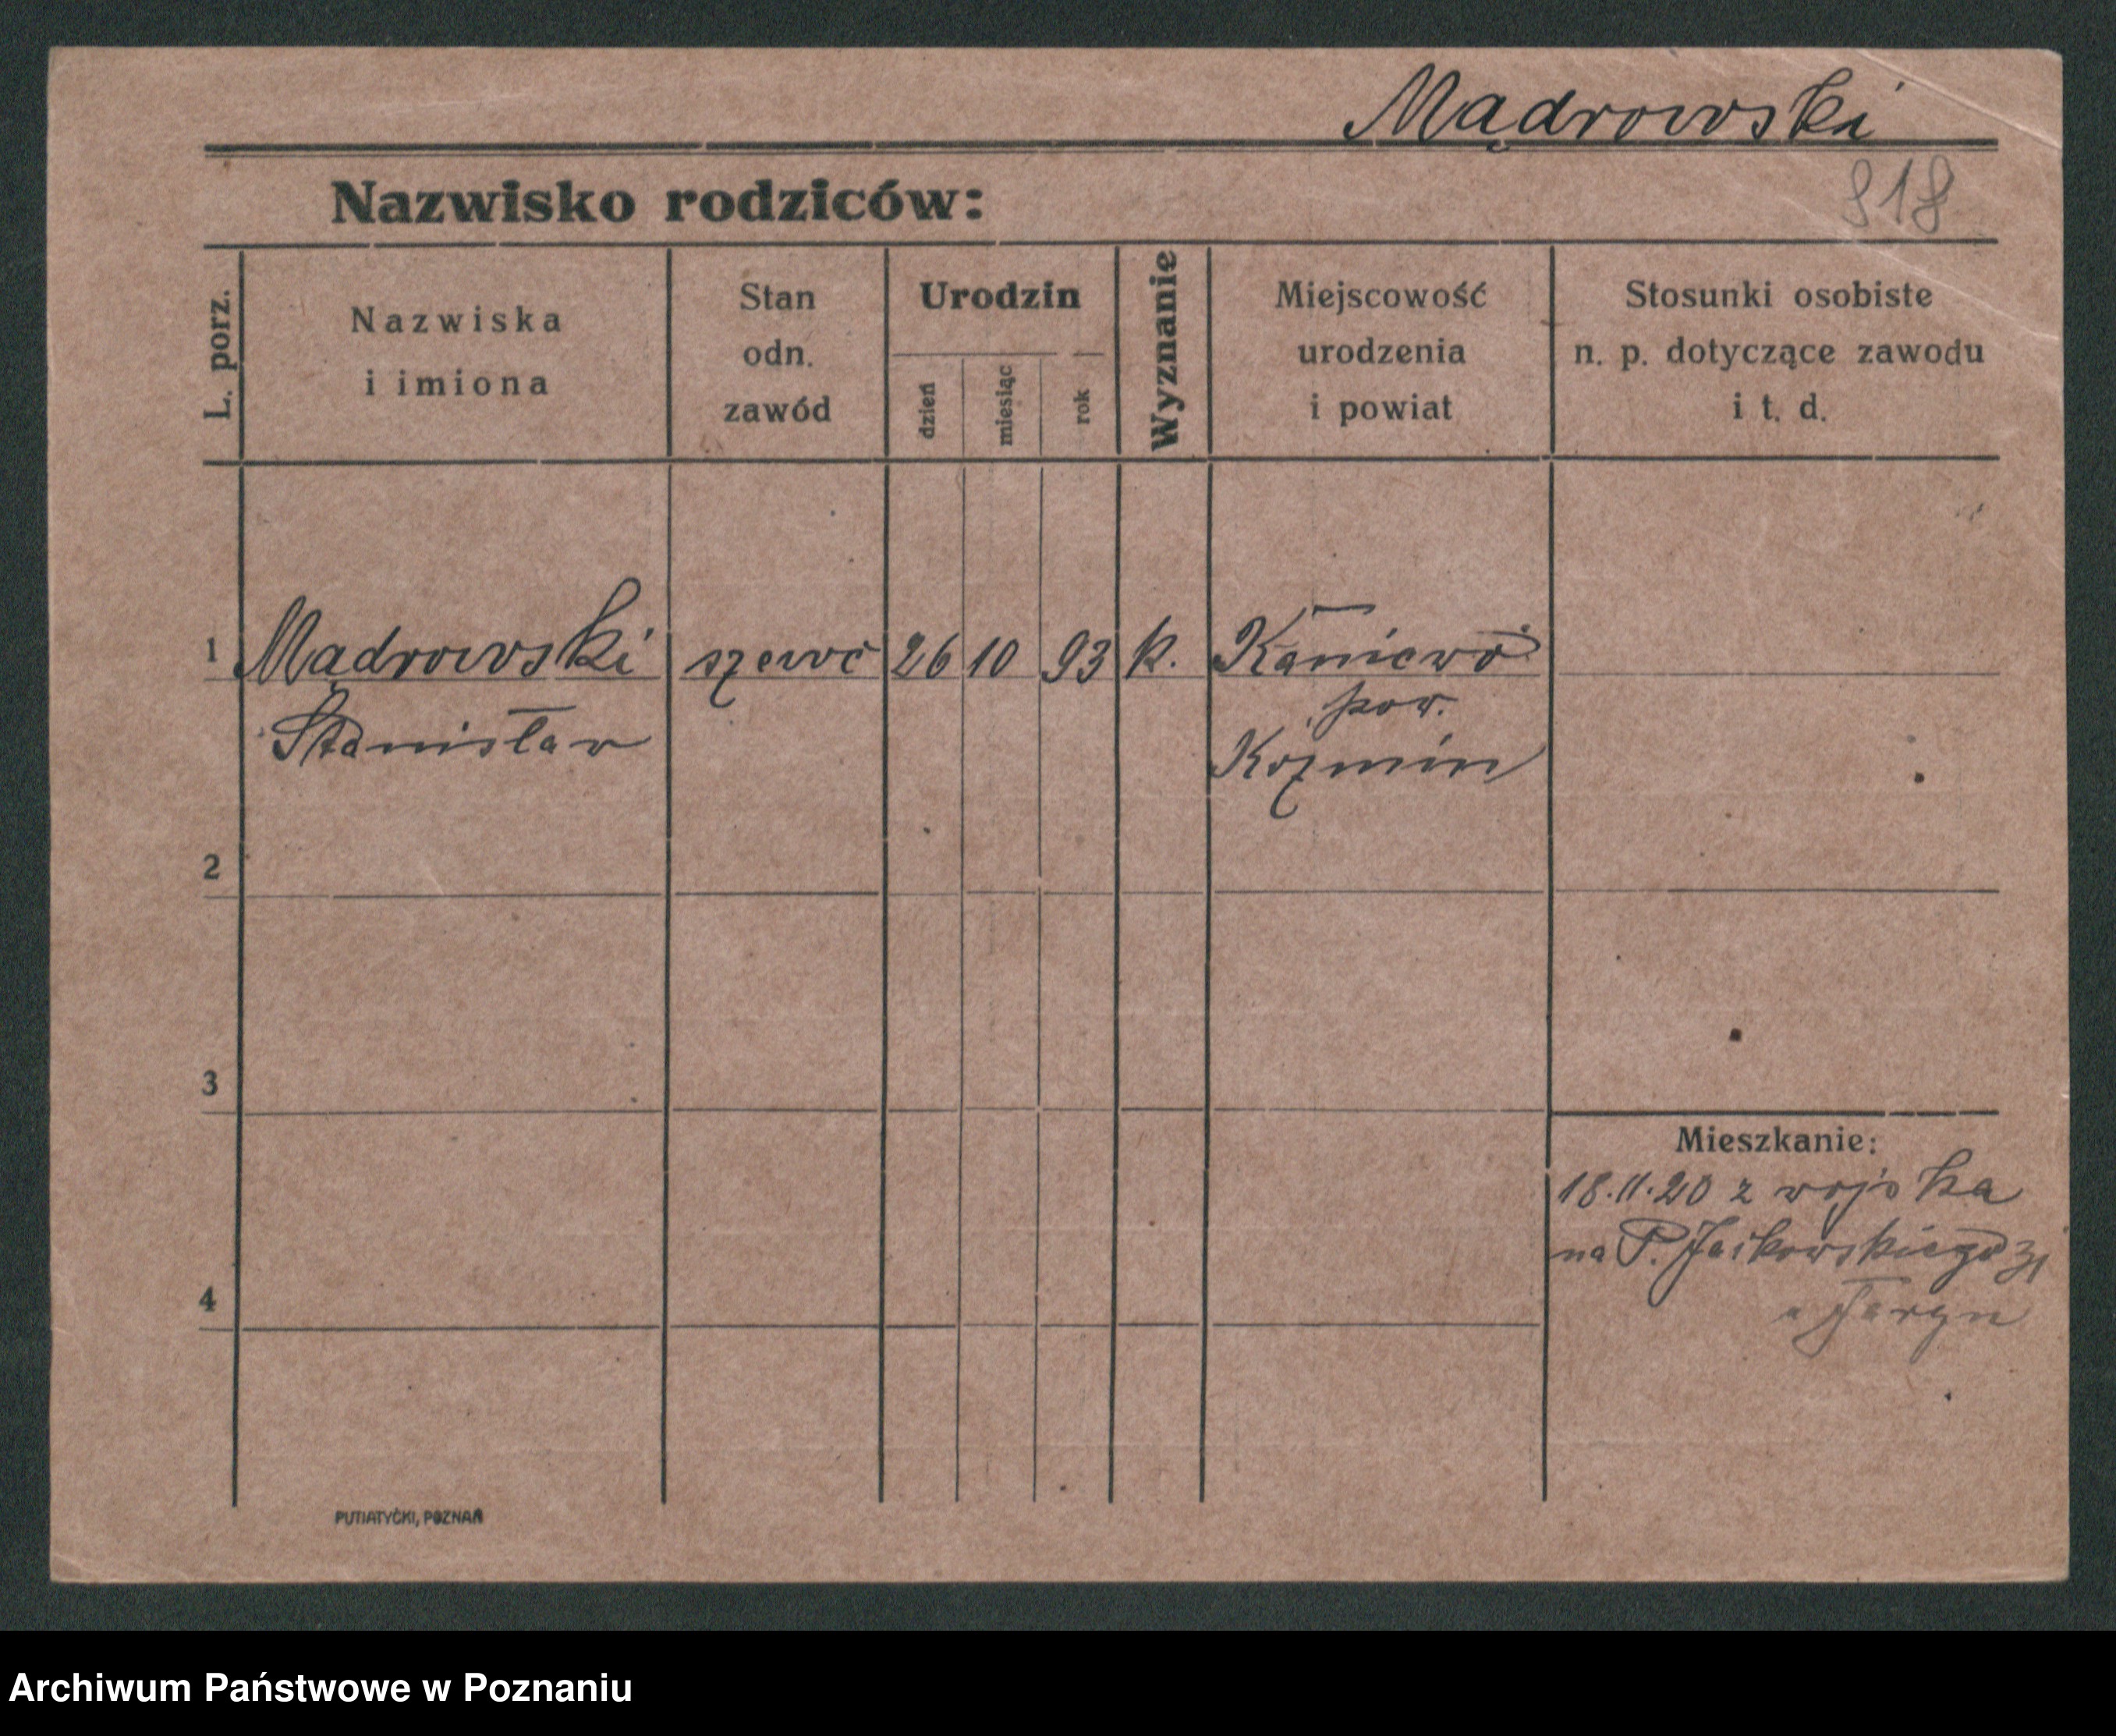 Mądrowski
918
Nazwisko rodziców:
L. porz.
Nazwiska
i imiona
Stan
odn.
zawód
Urodzin
dzień
miesiąc
rok
Wyznanie
Miejscowość
urodzenia
i powiat
Stosunki osobiste
n. p. dotyczące zawodu
i t. d.
1 Mądrowski szewc 26 10 93 k. Kaniewo
pow.
Stanisław
Kozmin
2
3
Mieszkanie:
18.11.20 z wojska
na P. Jackowskiego 31
4
PUTIATYCKI, POZNAŃ
Archiwum Państwowe w Poznaniu